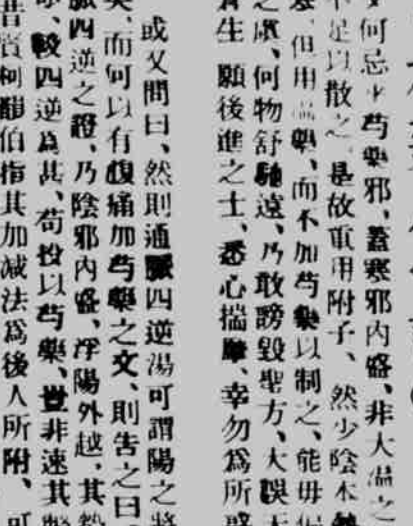 何忌於芍藥邪、蓋寒邪內盛、非大溫之
足以散之、是故重用附子、然少陰本
但用溫藥、而不加芍藥以制之、能毋
之處、何物舒馳遠、乃敢謗毀聖方、大誤
生願後進之士、悉心揣摩、幸勿爲所
或又問曰、然則通脈四逆湯可謂陽之
而何以有腹痛加芍藥之文、則告之曰
脈四逆之證、乃陰邪內盛、浮陽外越、其
較四逆爲甚、苟投以芍藥、豈非速其
昔賢柯韻伯指其加減法爲後人所附、可